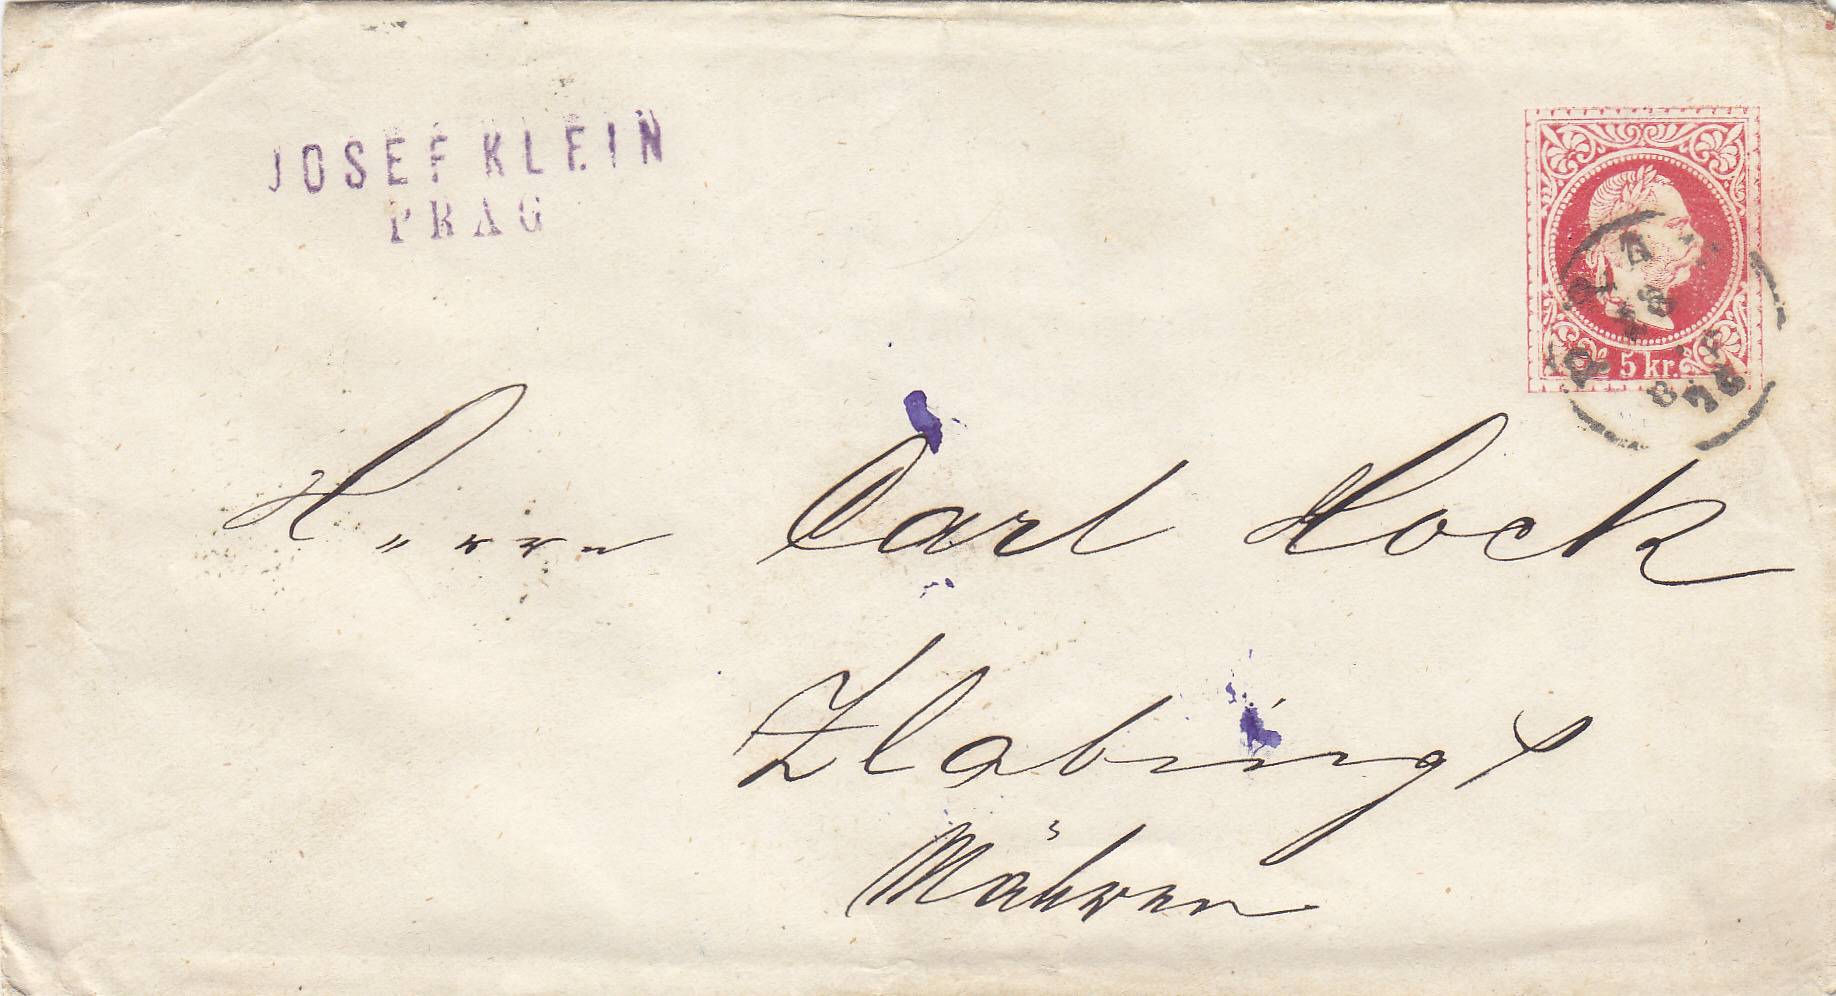 JOSEF KLEIN
PRAG
5 kr.
Herrn Carl Hock
Zlabings
Mähren